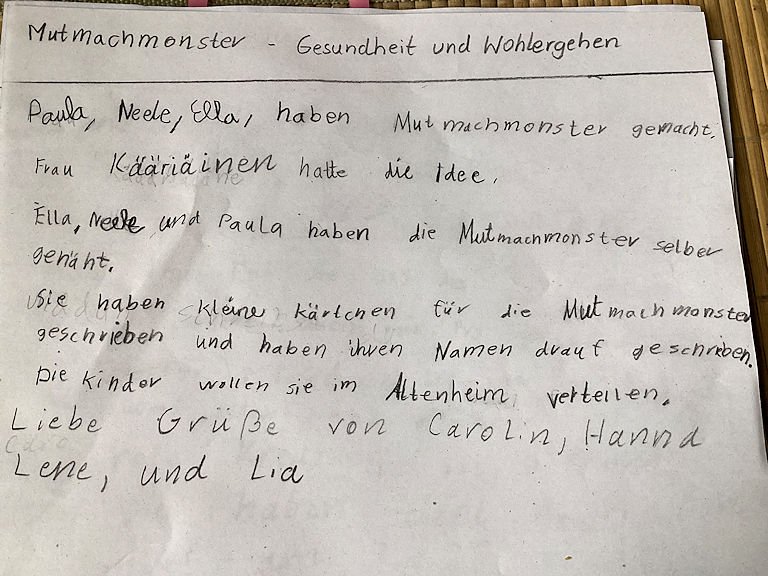 Mutmachmonster - Gesundheit und Wohlergehen
Paula, Neele, Ella, haben Mutmachmonster gemacht.
Frau Kääriäinen hatte die Idee.
Ella, Neele und Paula haben die Mutmachmonster selber
genäht.
Sie haben kleine kärtchen für die Mutmachmonster
geschrieben und haben ihren Namen drauf geschrieben.
Die Kinder wollen sie im Altenheim verteilen.
Liebe Grüße von Carolin, Hanna
Lene, und Lia